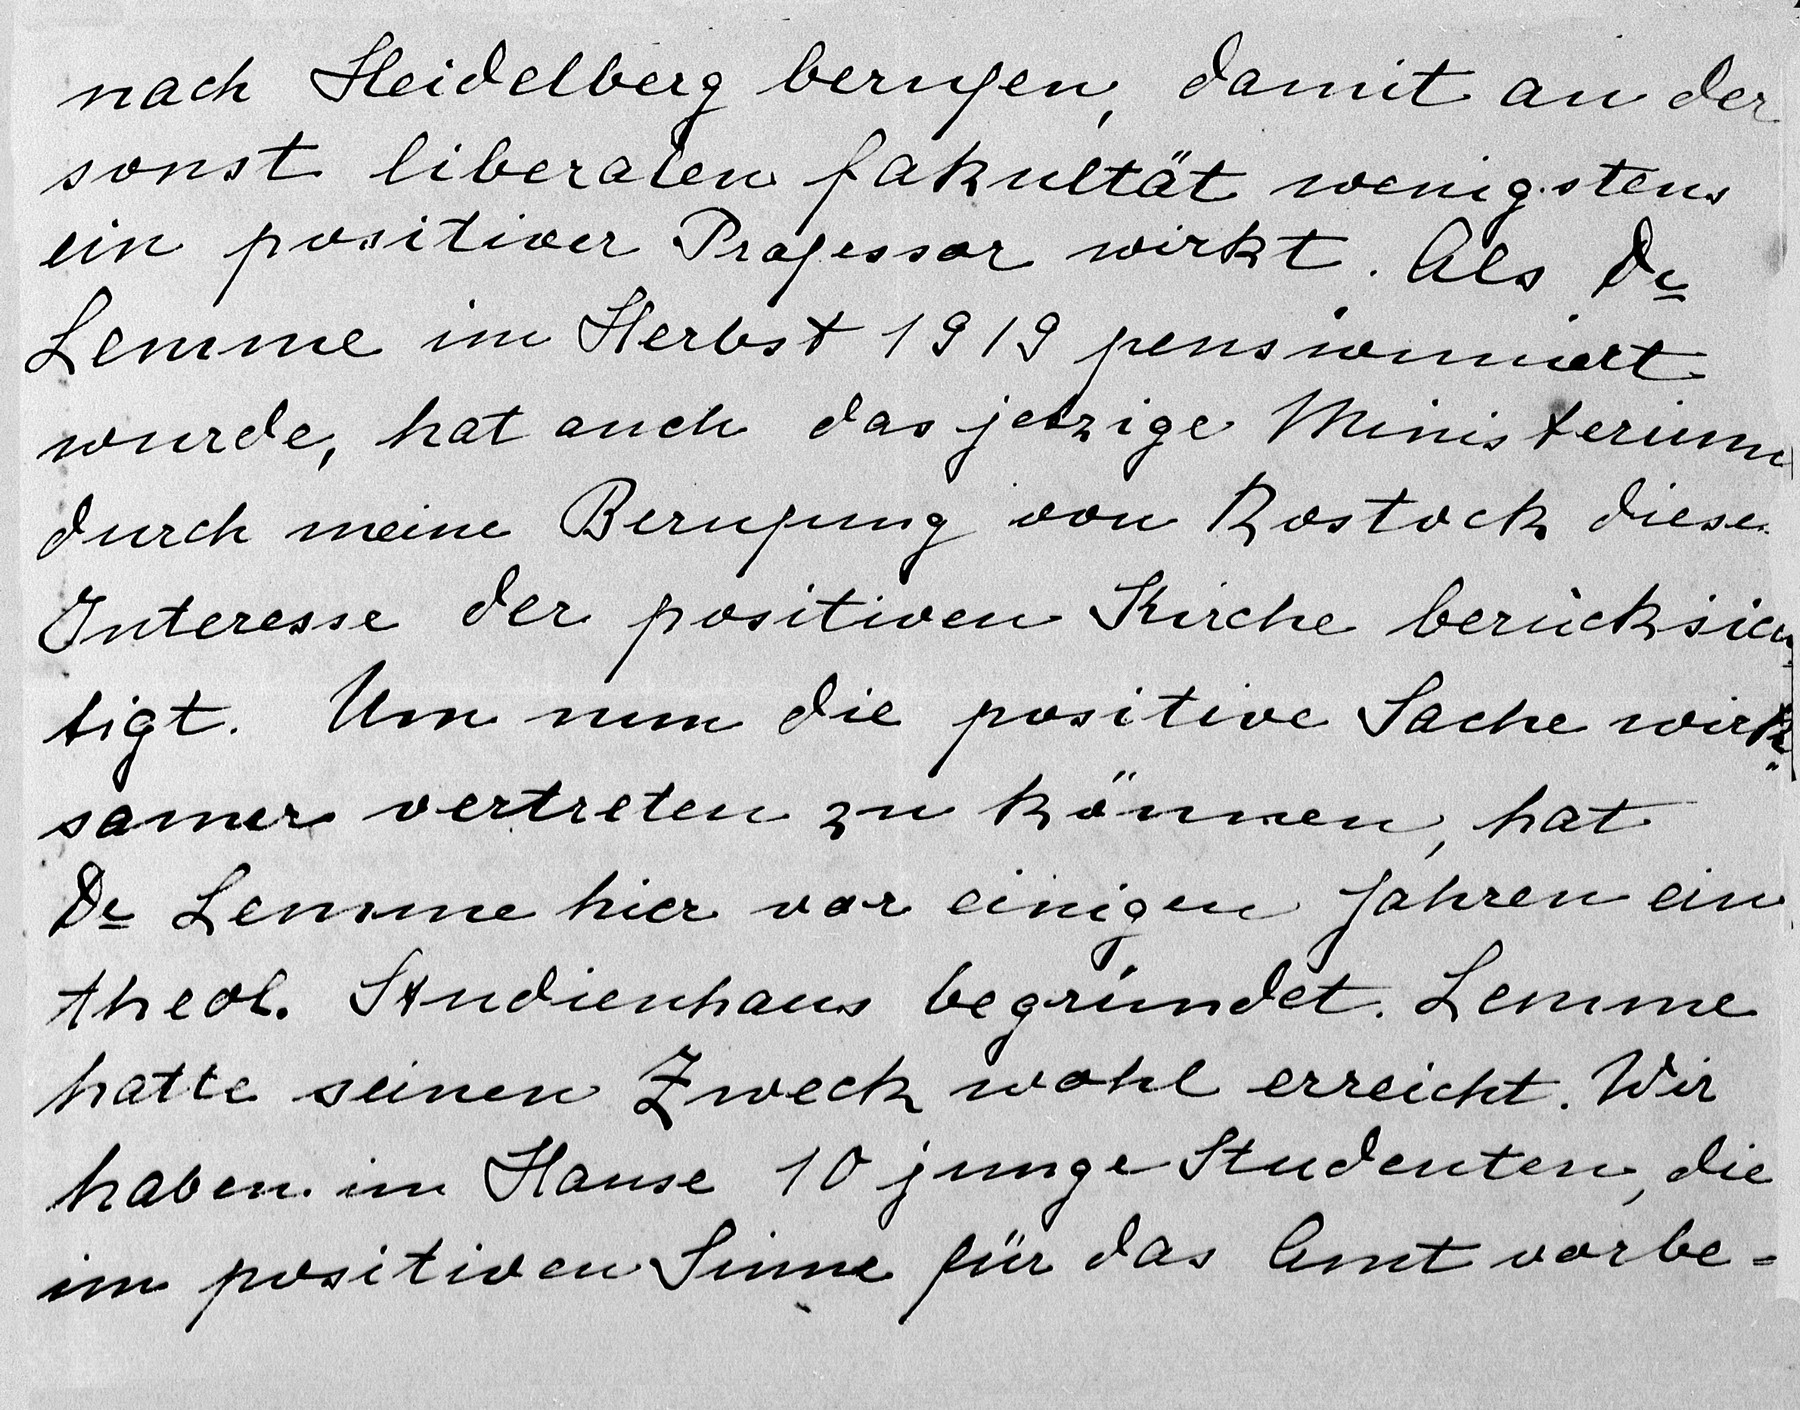 nach Heidelberg berufen, damit an der
sonst liberalen Fakultät wenigstens
ein positiver Professor wirkt. Als Dr
Lemme im Herbst 1919 pensioniert
wurde, hat auch das jetzige Ministerium
durch meine Berufung von Rostock diese
Interesse der positiven Kirche berücksich
tigt. Um nun die positive Sache wirk
samer vertreten zu können, hat
Dr Lemme hier vor einigen Jahren ein
theol. Studienhaus begründet. Lemme
hatte seinen Zweck wohl erreicht. Wir
haben im Hause 10 junge Studenten, die
im positiven Sinne für das Amt vorbe=